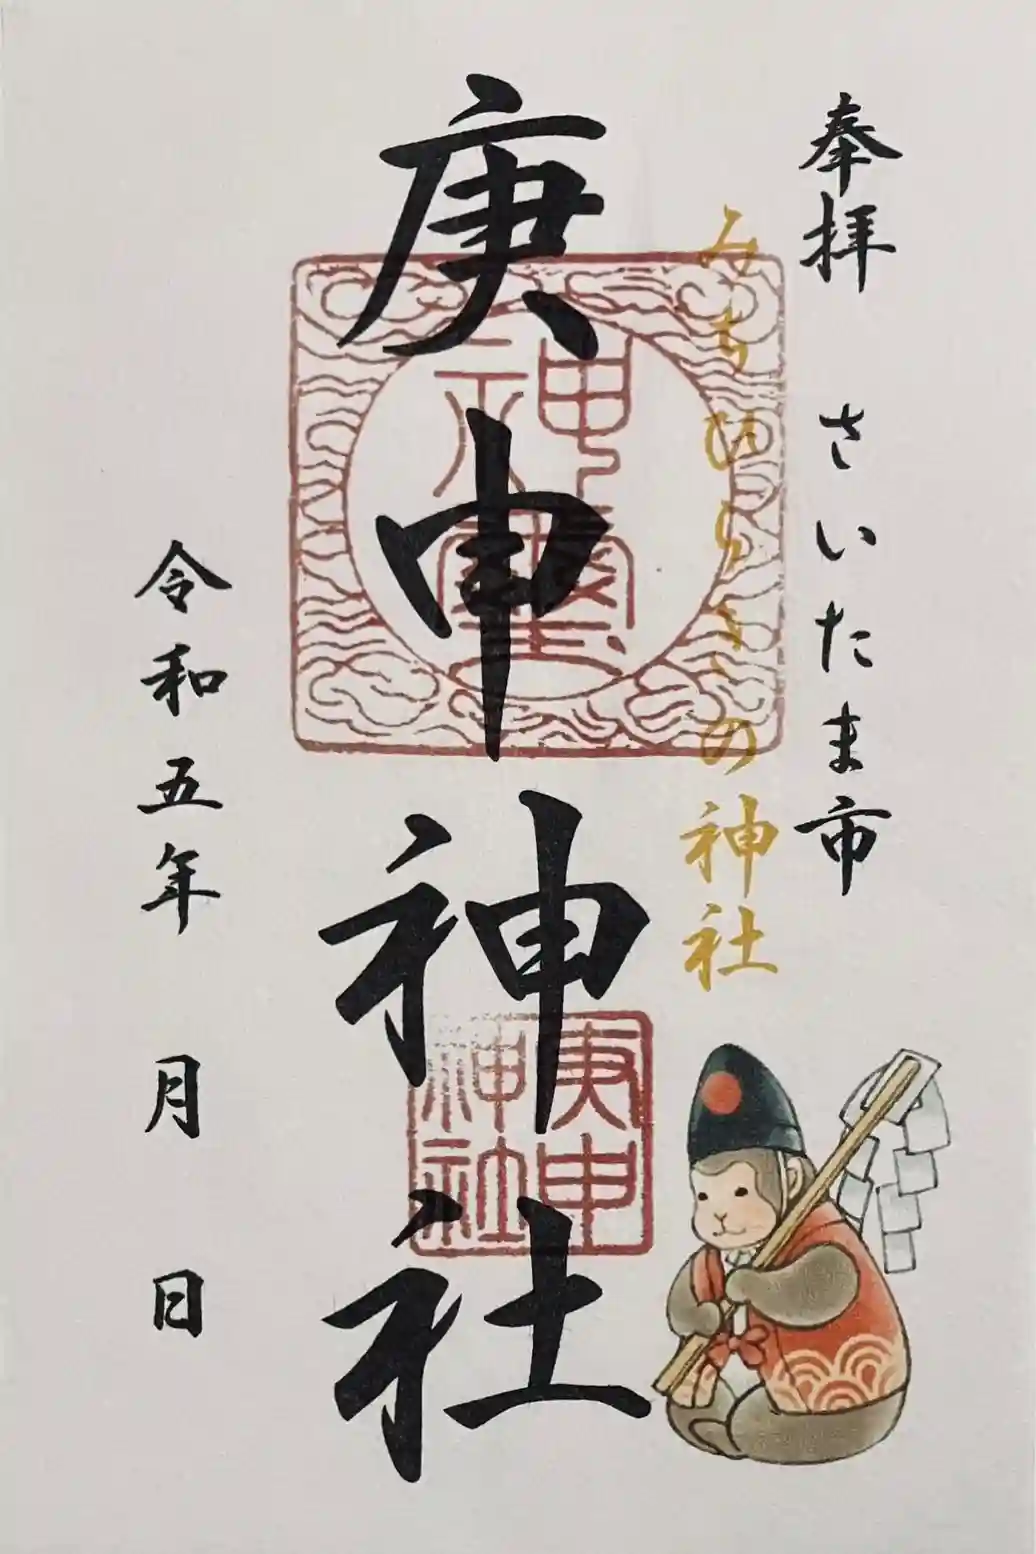 奉拝 さいたま市
みちひらきの神社
庚申神社
神璽
庚申神社
令和五年 月 日